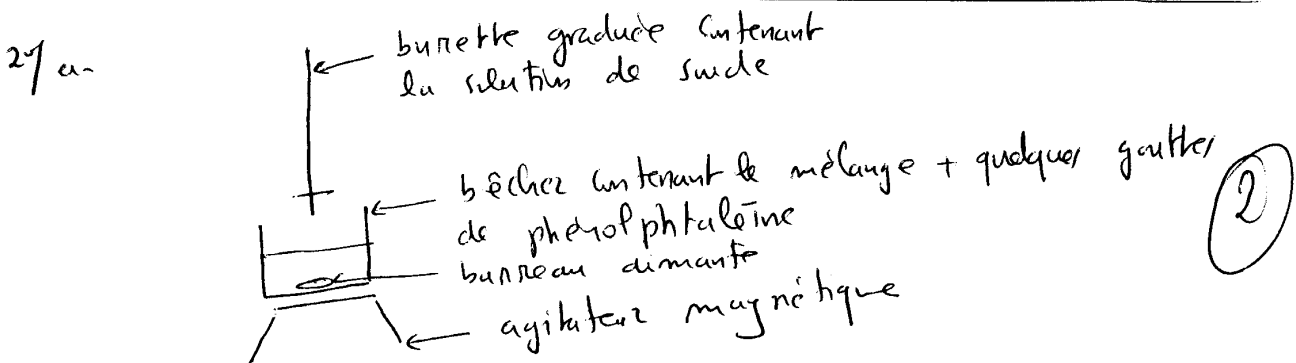 2°/ a-
burette graduée contenant
la solution de soude
bêcher contenant le mélange + quelques gouttes
de phénolphtaléine
barreau aimanté
agitateur magnétique
2